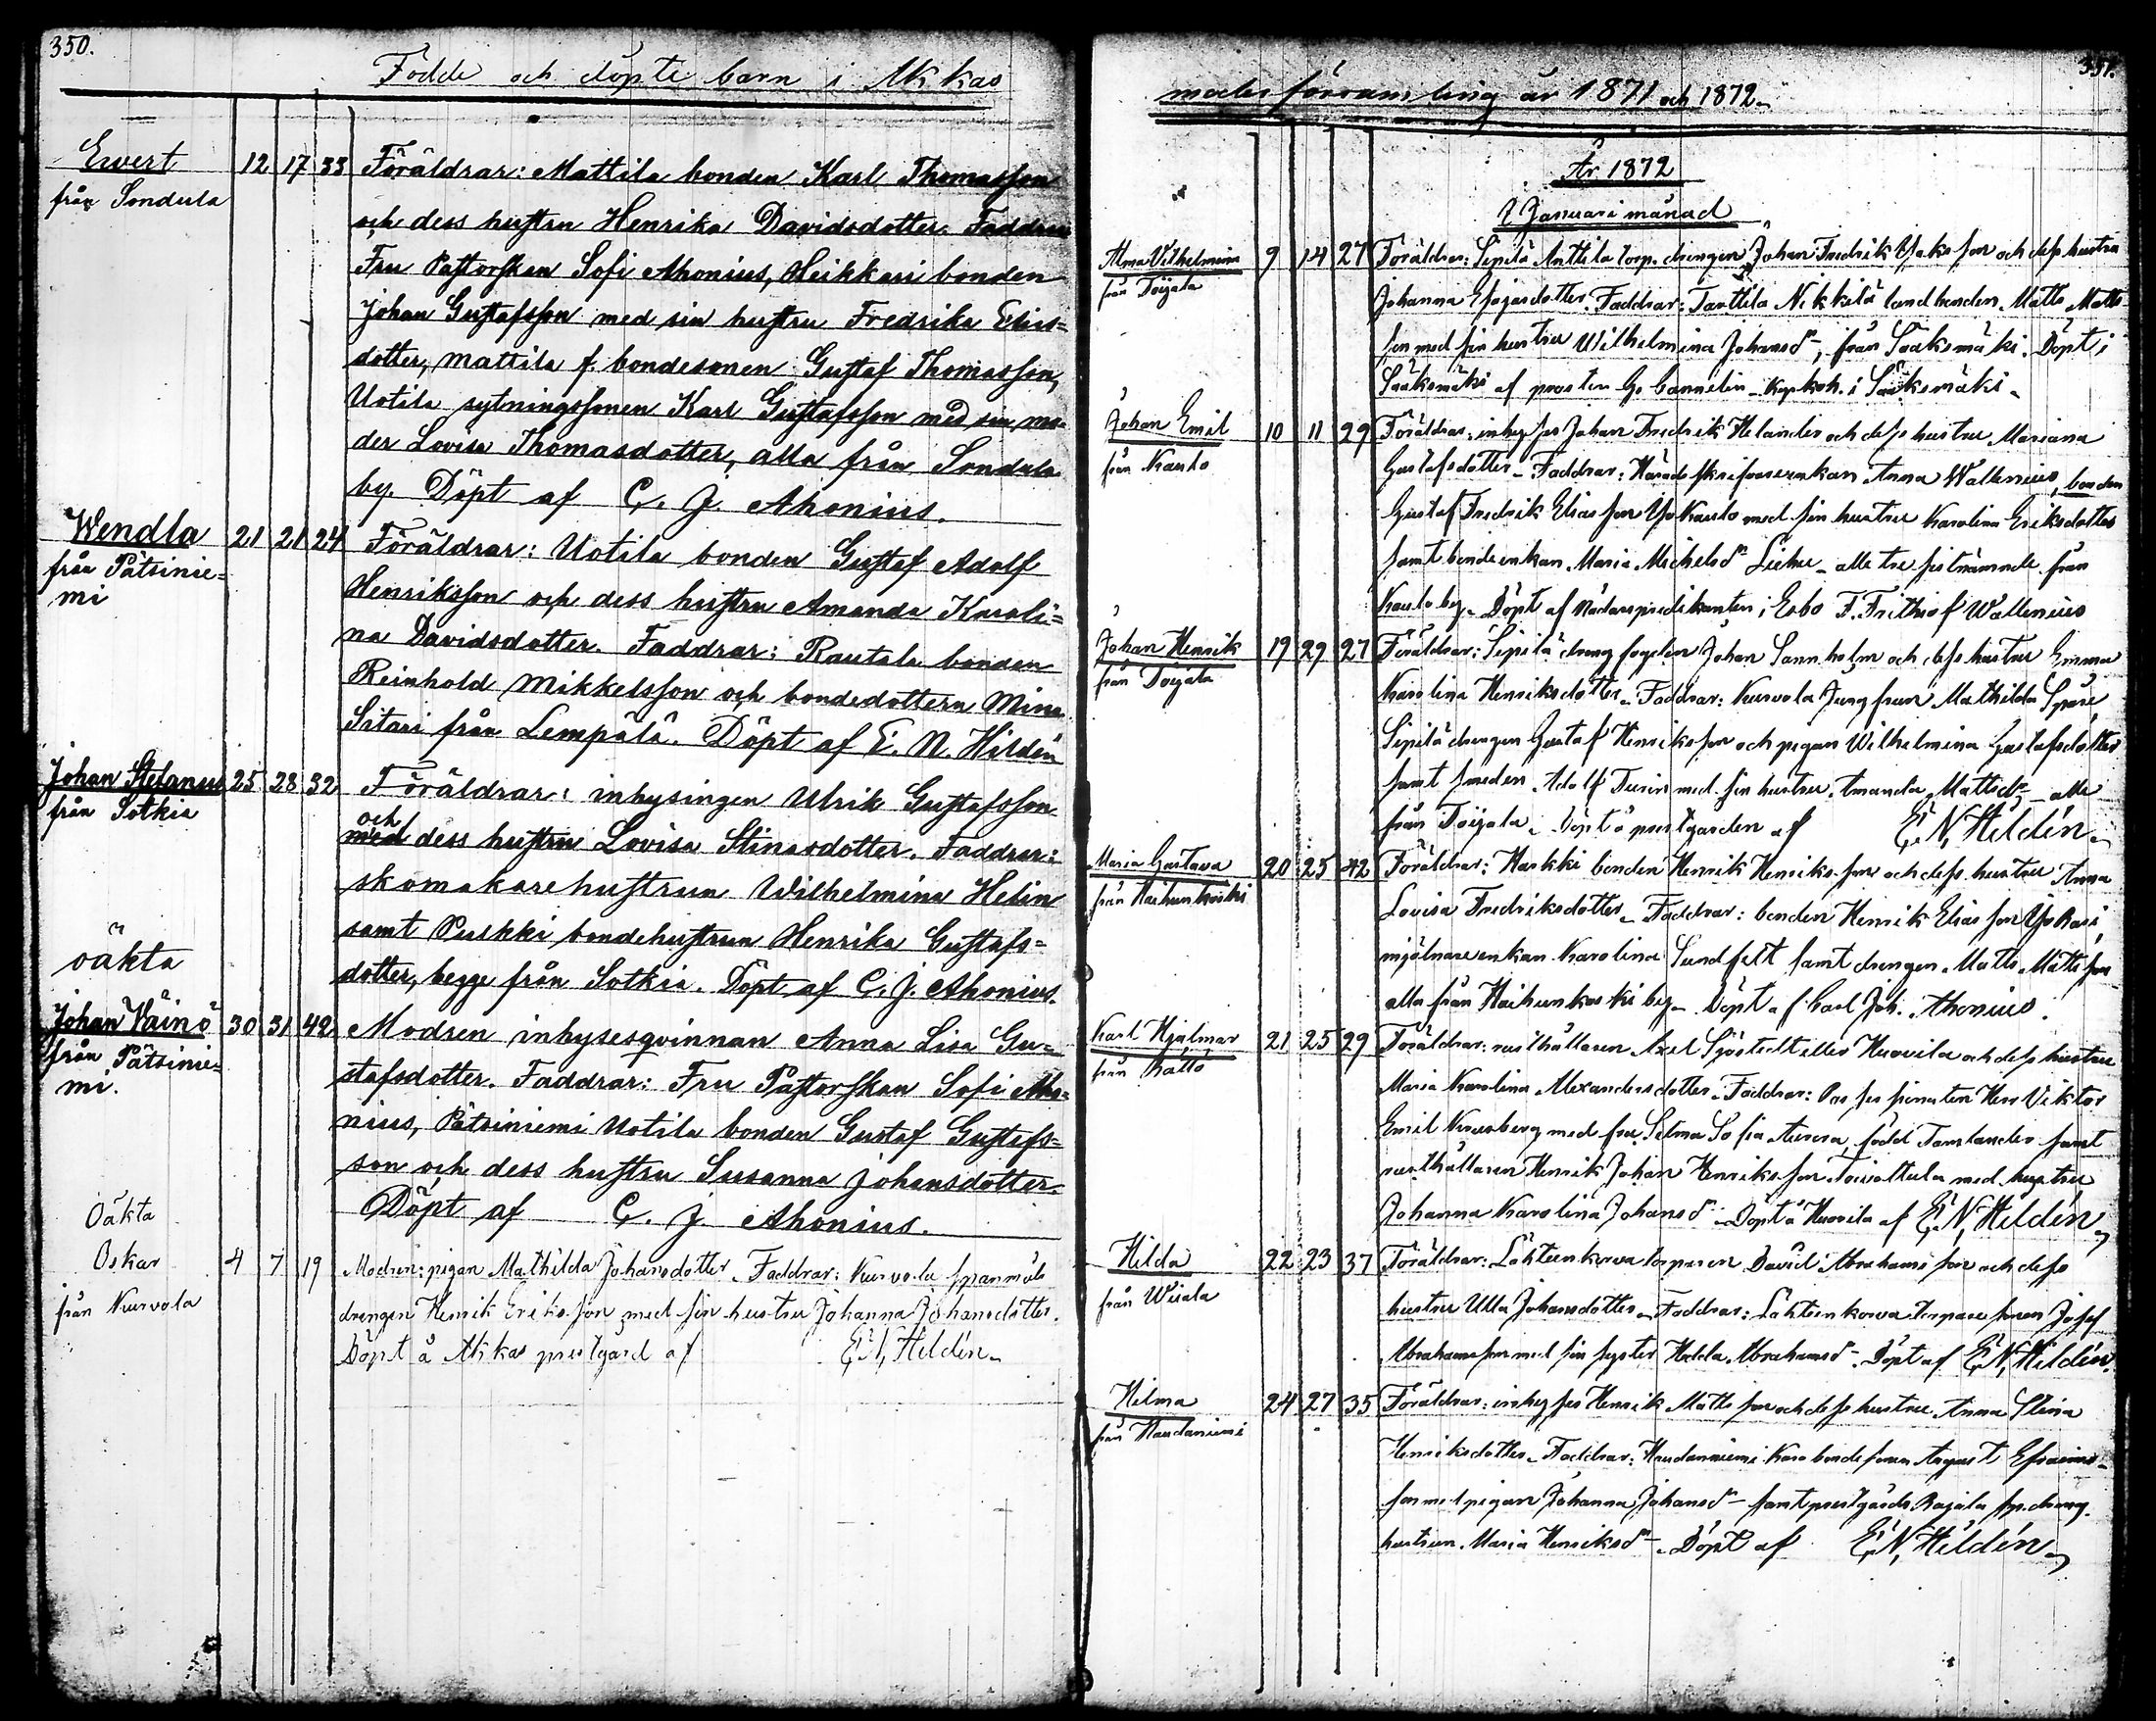 350.
Födde och döpte barn i Akkas
Ewert 12 17 33 Föräldrar: Mattila bonden Karl Thomasson
från Sondula
och dess hustru Henrika Davidsdotter. Faddrar
Fru Pastorskan Sofi Ahonius, Heikkari bonden
Johan Gustafsson med sin hustru Fredrika Elias=
dotter, Mattila f. bondesonen Gustaf Thomasson,
Uotila sytningssonen Karl Gustafsson med sin mo=
der Lovisa Thomasdotter, alla från Sondula
by. Döpt af C. J. Ahonius.
Wendla 21 21 24 Föräldrar: Uotila bonden Gustaf Adolf
från Pätsinie=
mi
Henriksson och dess hustru Amanda Karoli=
na Davidsdotter. Faddrar: Rautala bonden
Reinhold Mikkelsson och bondedottern Mina
Sitari från Lempälä. Döpt af E. N. Hildén
Johan Stefanus 25 28 32 Föräldrar: inhysingen Ulrik Gustafsson
från Sotkia
och
med dess hustru Lovisa Stinasdotter. Faddrar:
skomakarehustrun Wilhelmina Helin
samt Puskki bondehustrun Henrika Gustafs=
dotter, begge från Sotkia. Döpt af C. J. Ahonius.
oäkta
Johan Väinö 30 31 42 Modren inhysesqvinnan Anna Lisa Gu=
från Pätsinie=
mi.
stafsdotter. Faddrar: Fru Pastorskan Sofi Aho=
nius, Pätsiniemi Uotila bonden Gustaf Gustafs=
son och dess hustru Susanna Johansdotter.
Döpt af C. J. Ahonius.
Oäkta
Oskar 4 7 19 Modren: pigan Mathilda Johansdotter. Faddrar: Kurvola spanmåls
från Kurvola
drengen Henrik Eriksson med sin hustru Johanna Johansdotter.
Döpt å Akkas prestgård af E. N. Hildén.
351.
moderförsamling år 1871 och 1872.
År 1872
I Januari månad
Alma Vilhelmina 9 14 27 Föräldrar: Sipilä Anttila torp. drengen Johan Fredrik Isaksson och dess hustru
från Toijala
Johanna Esajasdotter. Faddrar: Tanttila Nikkilä landbonden Matts Matts
son med sin hustru Wilhelmina Johansdr, från Sääksmäki. Döpt i
Sääksmäki af prosten G. Cannelin kyrkoh. i Sääksmäki.
Johan Emil 10 11 29 Föräldrar: inhyses Johan Fredrik Helander och dess hustru Mariana
från Kauto
Gustafsdotter. Faddrar: Häradsskrifvareenkan Anna Wallenius, bonden
Gustaf Fredrik Eliasson Yso Kauto med sin hustru Karolina Eriksdotter
samt bondeenkan Maria Michelsdr - alla tre sistnämnde från
Kauto by. Döpt af Nådårspredikanten i Esbo F. Frithiof Wallenius
Johan Henrik 19 29 27 Föräldrar: Sipilä drengfogden Johan Sannholm och dess hustru Emma
från Toijala
Karolina Henriksdotter. Faddrar: Kurvola Jungfrun Mathilda Spåre
Sipilä drengen Gustaf Henriksson och pigan Wilhelmina Gustafsdotter
samt smeden Adolf med sin hustru Amanda Mattsdr - alla
från Toijala. Döpt å prestgården af E. N. Hildén.
Maria Gustava 20 25 42 Föräldrar: Harkki bonden Henrik Henriksson och dess hustru Anna
från Haihunkoski
Lovisa Fredriksdotter. Faddrar: bonden Henrik Eliasson Yso Rasi,
mjölnareenkan Karolina Sundfelt samt drengen Matts Mattsson
alla från Haihunkoski by. Döpt af Carl Joh. Ahonius.
Karl Hjalmar 21 25 29 Föräldrar: rusthållaren Axel Sjöstedt eller Huovila och dess hustru
från Kätto
Maria Karolina Alexandersdotter. Faddrar: Possessionaten Herr Viktor
Emil Knusberg med fru Selma Sofia Aurora född samt
rusthållaren Henrik Johan Henriksson med hustru
Johanna Karolina Johansdr. Döpt å Huovila af E. N. Hildén
Hilda 22 23 37 Föräldrar: Lahteenkorva torparen David Abrahamsson och dess
från Wiiala
hustru Ulla Johansdotter. Faddrar: Lahteenkorva torpare sonen Josef
Abrahamsson med sin syster Hedda Abrahamsdr. Döpt af E. N. Hildén.
Hilma 24 27 35 Föräldrar: inhyses Henrik Mattsson och dess hustru Anna Stina
från Haudaniemi
Henriksdotter. Faddrar: Haudanniemi Kara bondesonen August Efraims-
son med pigan Johanna Johansdr - samt prestgårds Rajala sp. dreng.
hustrun Maria Henriksdr. Döpt af E. N. Hildén.